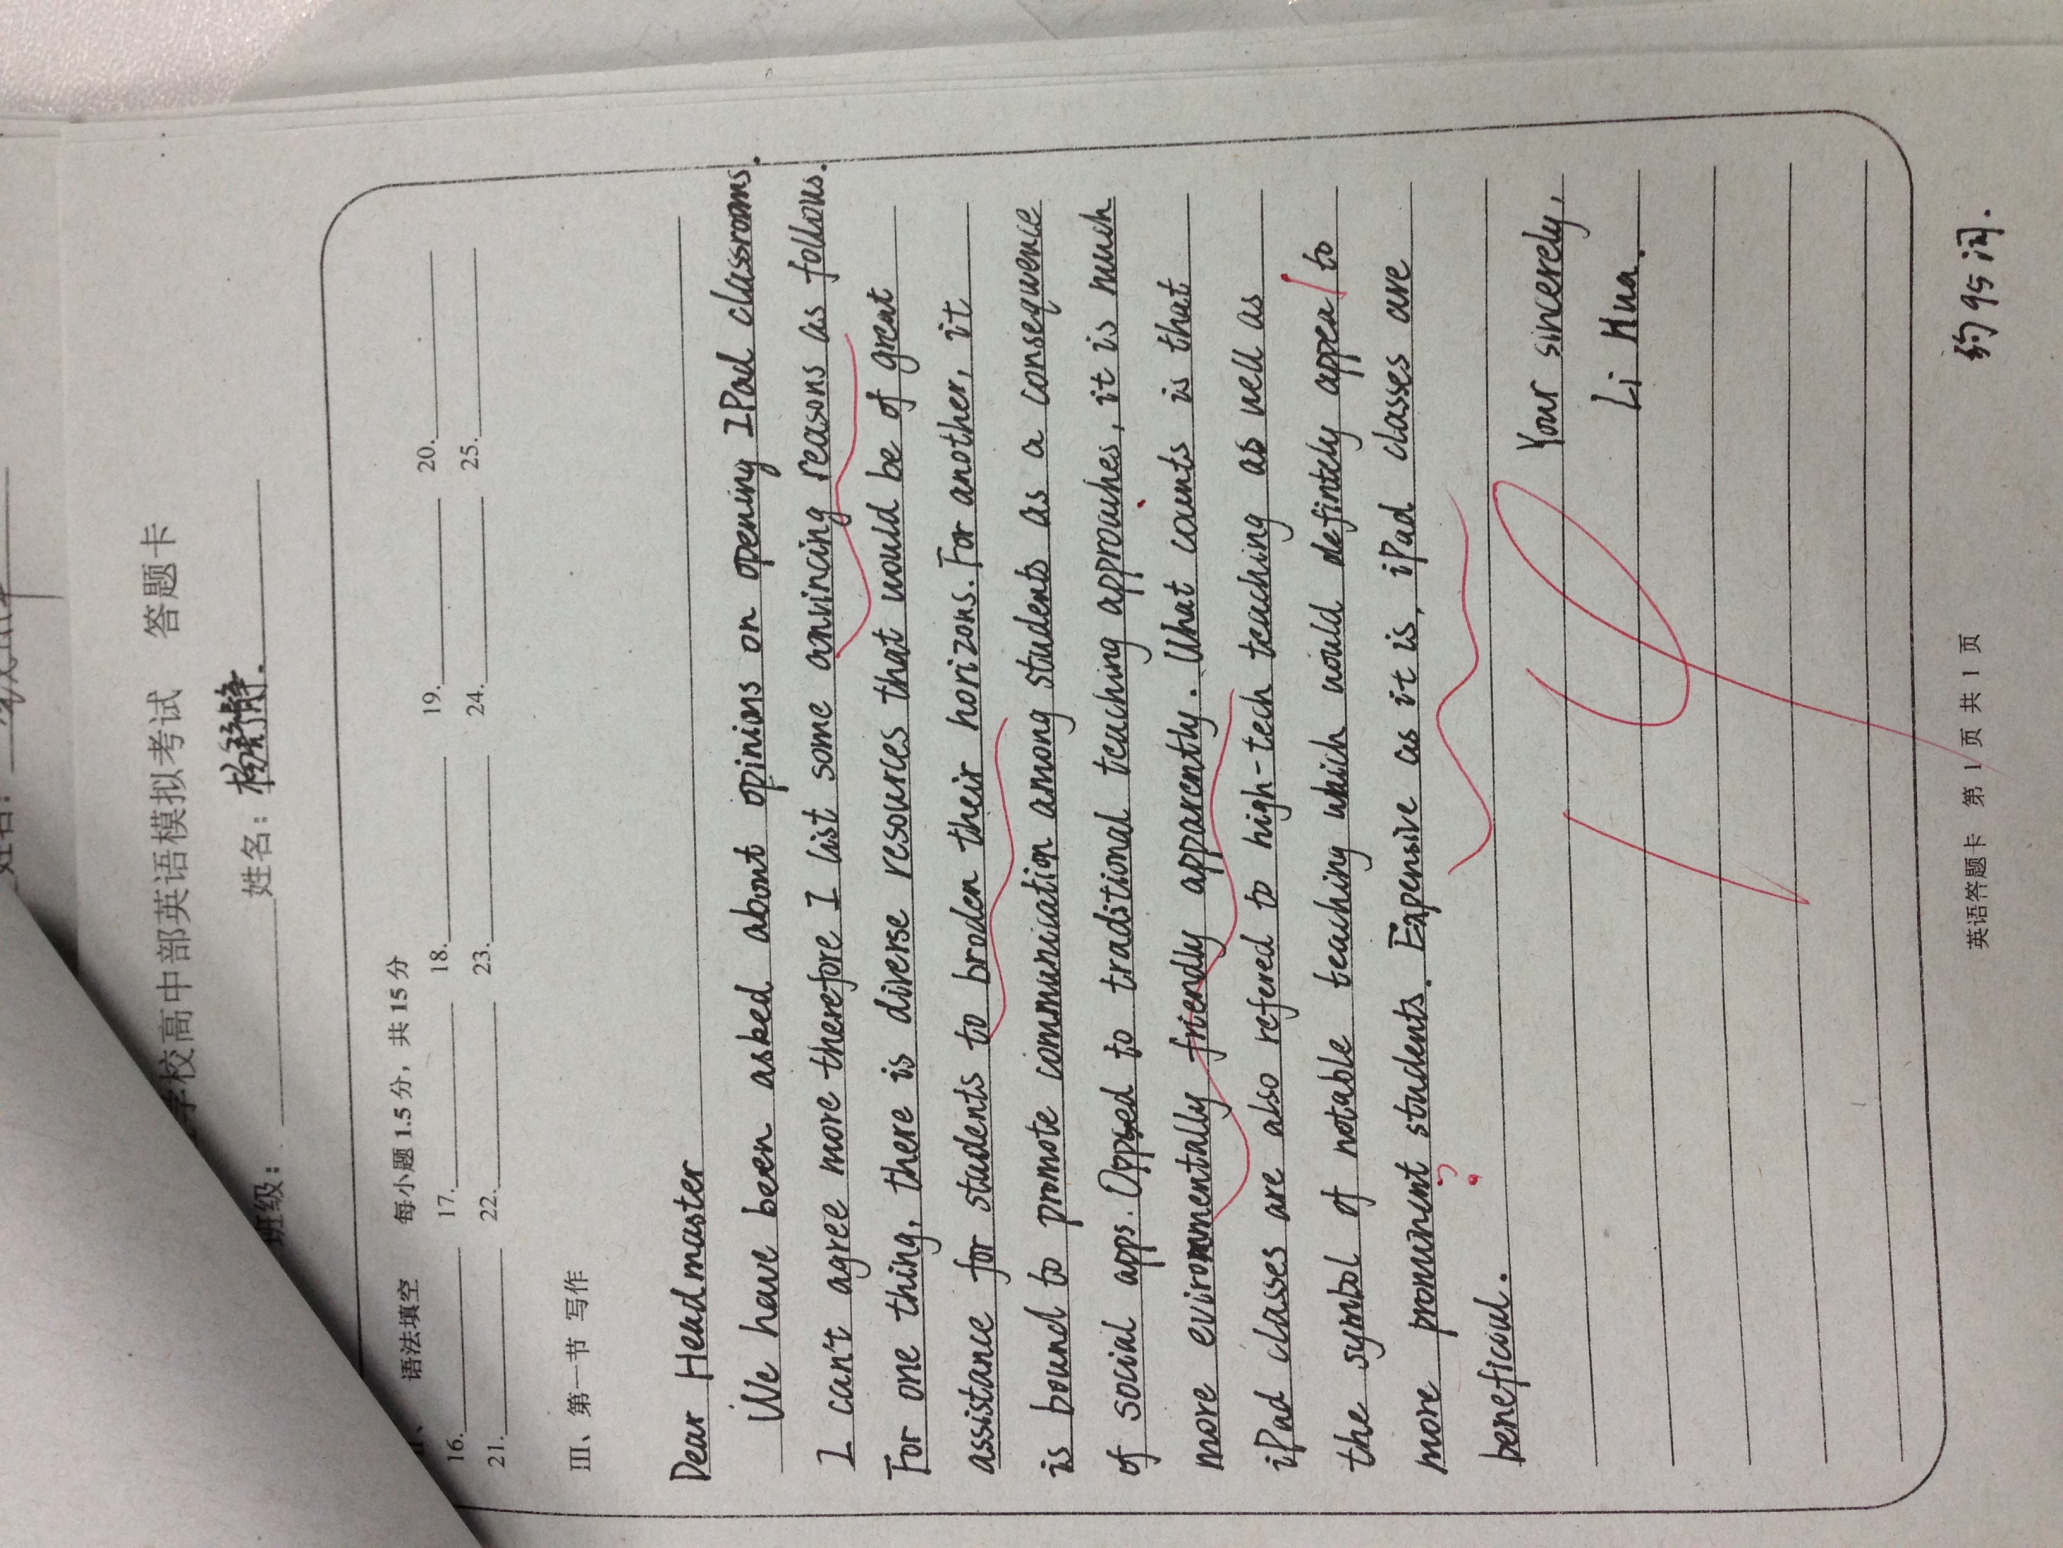 学校高中部英语模拟考试 答题卡
班级： 姓名：
语法填空 每小题 1.5 分，共 15 分
16. 17. 18. 19. 20.
21. 22. 23. 24. 25.
III、第一节 写作
Dear Headmaster
We have been asked about opinions on opening IPad classrooms.
I can't agree more therefore I list some convincing reasons as follows.
For one thing, there is diverse resources that would be of great
assistance for students to broden their horizons. For another, it
is bound to promote communication among students as a consequence
of social apps. Oppsed to traditional teaching approaches, it is much
more evironmentally friendly apparently. What counts is that
iPad classes are also refered to high-tech teaching as well as
the symbol of notable teaching which would defintely appea to
more pronunent students. Expensive as it is, iPad classes are
beneficial.
Your sincerely,
Li Hua.
约 95 词.
英语答题卡 第 1 页 共 1 页